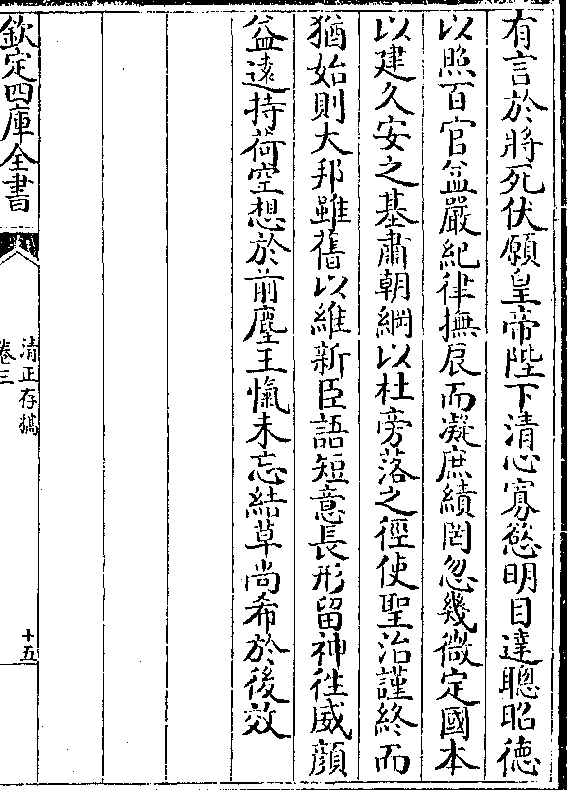 有言於將死伏願皇帝陛下清心寡慾明目達聰昭德
以照百官益嚴紀律撫辰而凝庶績罔忽幾微定國本
以建久安之基肅朝綱以杜旁落之徑使聖治謹終而
猶始則大邦雖舊以維新臣語短意長形留神徃威顔
益逺持荷空想於前塵王愾未忘結草尚希於後效
欽定四庫全書
清正存稿
卷三
十五